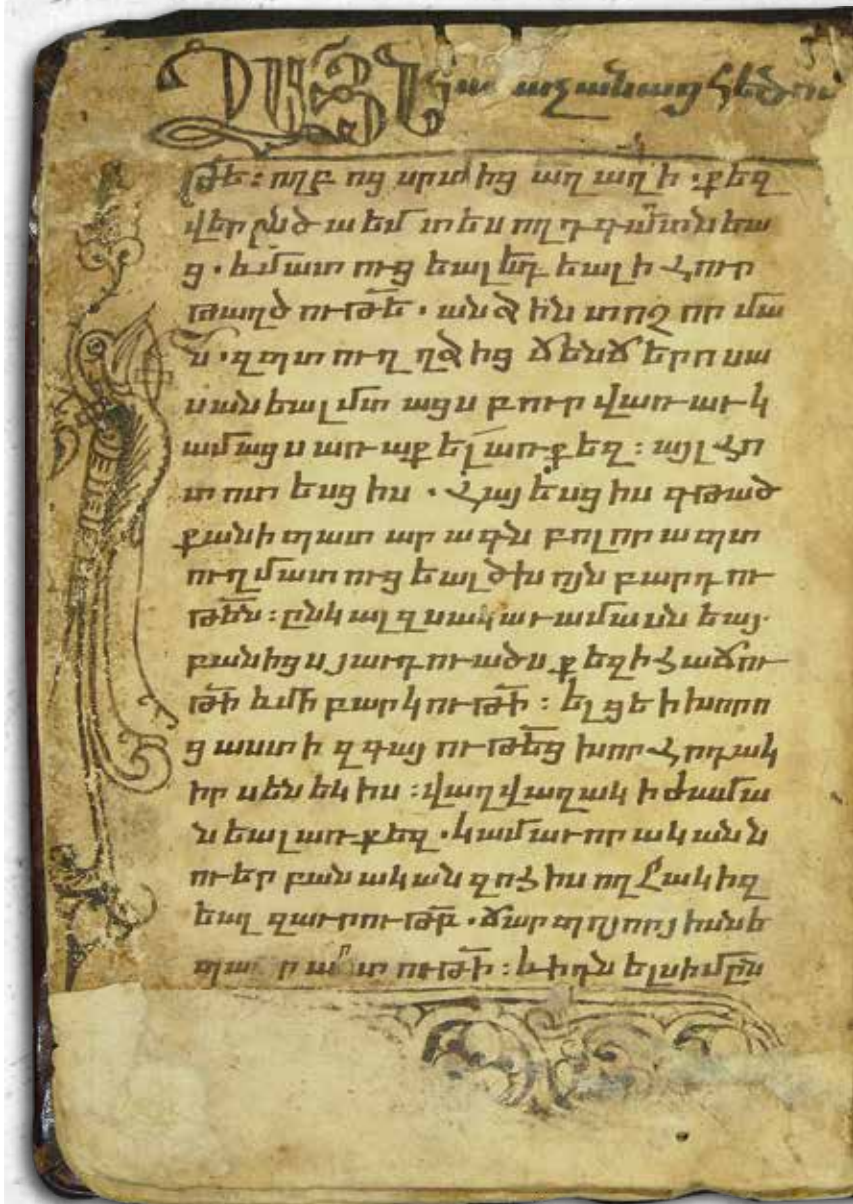 ՁԱՅՆ հառաչանաց հեծու
թե: ողբ ոց սրտ ից աղ աղ ի. քեզ
վեր ընծ ա եմ տես ող դ գա՟ղտն եա
ց. եւ մատ ուց եալ եդ եալ ի հուր
թաղծ ութե՟. անձ ին տոչ որ մա
ն. զպտ ուղ ղձ ից ճենճ երո սա
սան եալ մտ ացս բուր վառ աւ կ
ամաց ս առ աք ել առ քեզ: այլ հո
տ ոտ եսց իս. հայ եսց իս գթած
քան ի պատ ար ագն բոլոր ա պտ
ուղ մատ ուց եալ ծխ ոյն բարդ ու
թե՟ն: ընկ ալ զսակ աւ ամասն եայ.
բանից ս յաւդ ու ածս քեզ ի հաճու
թի՟ եւ մի բարկ ութի՟: ելց է ի խորո
ց աստ ի զգայ ութե՟ց խոր հրդակ
իր սեն եկ իս: վաղվաղակ ի ժամա
ն եալ առ քեզ. կամաւոր ական ն
ուեր բան ական զոհ իս ող ջակ իզ
եալ զաւրութբ՟. ճարպոյ որ յիսն է
պա ր ար տ ութի՟: